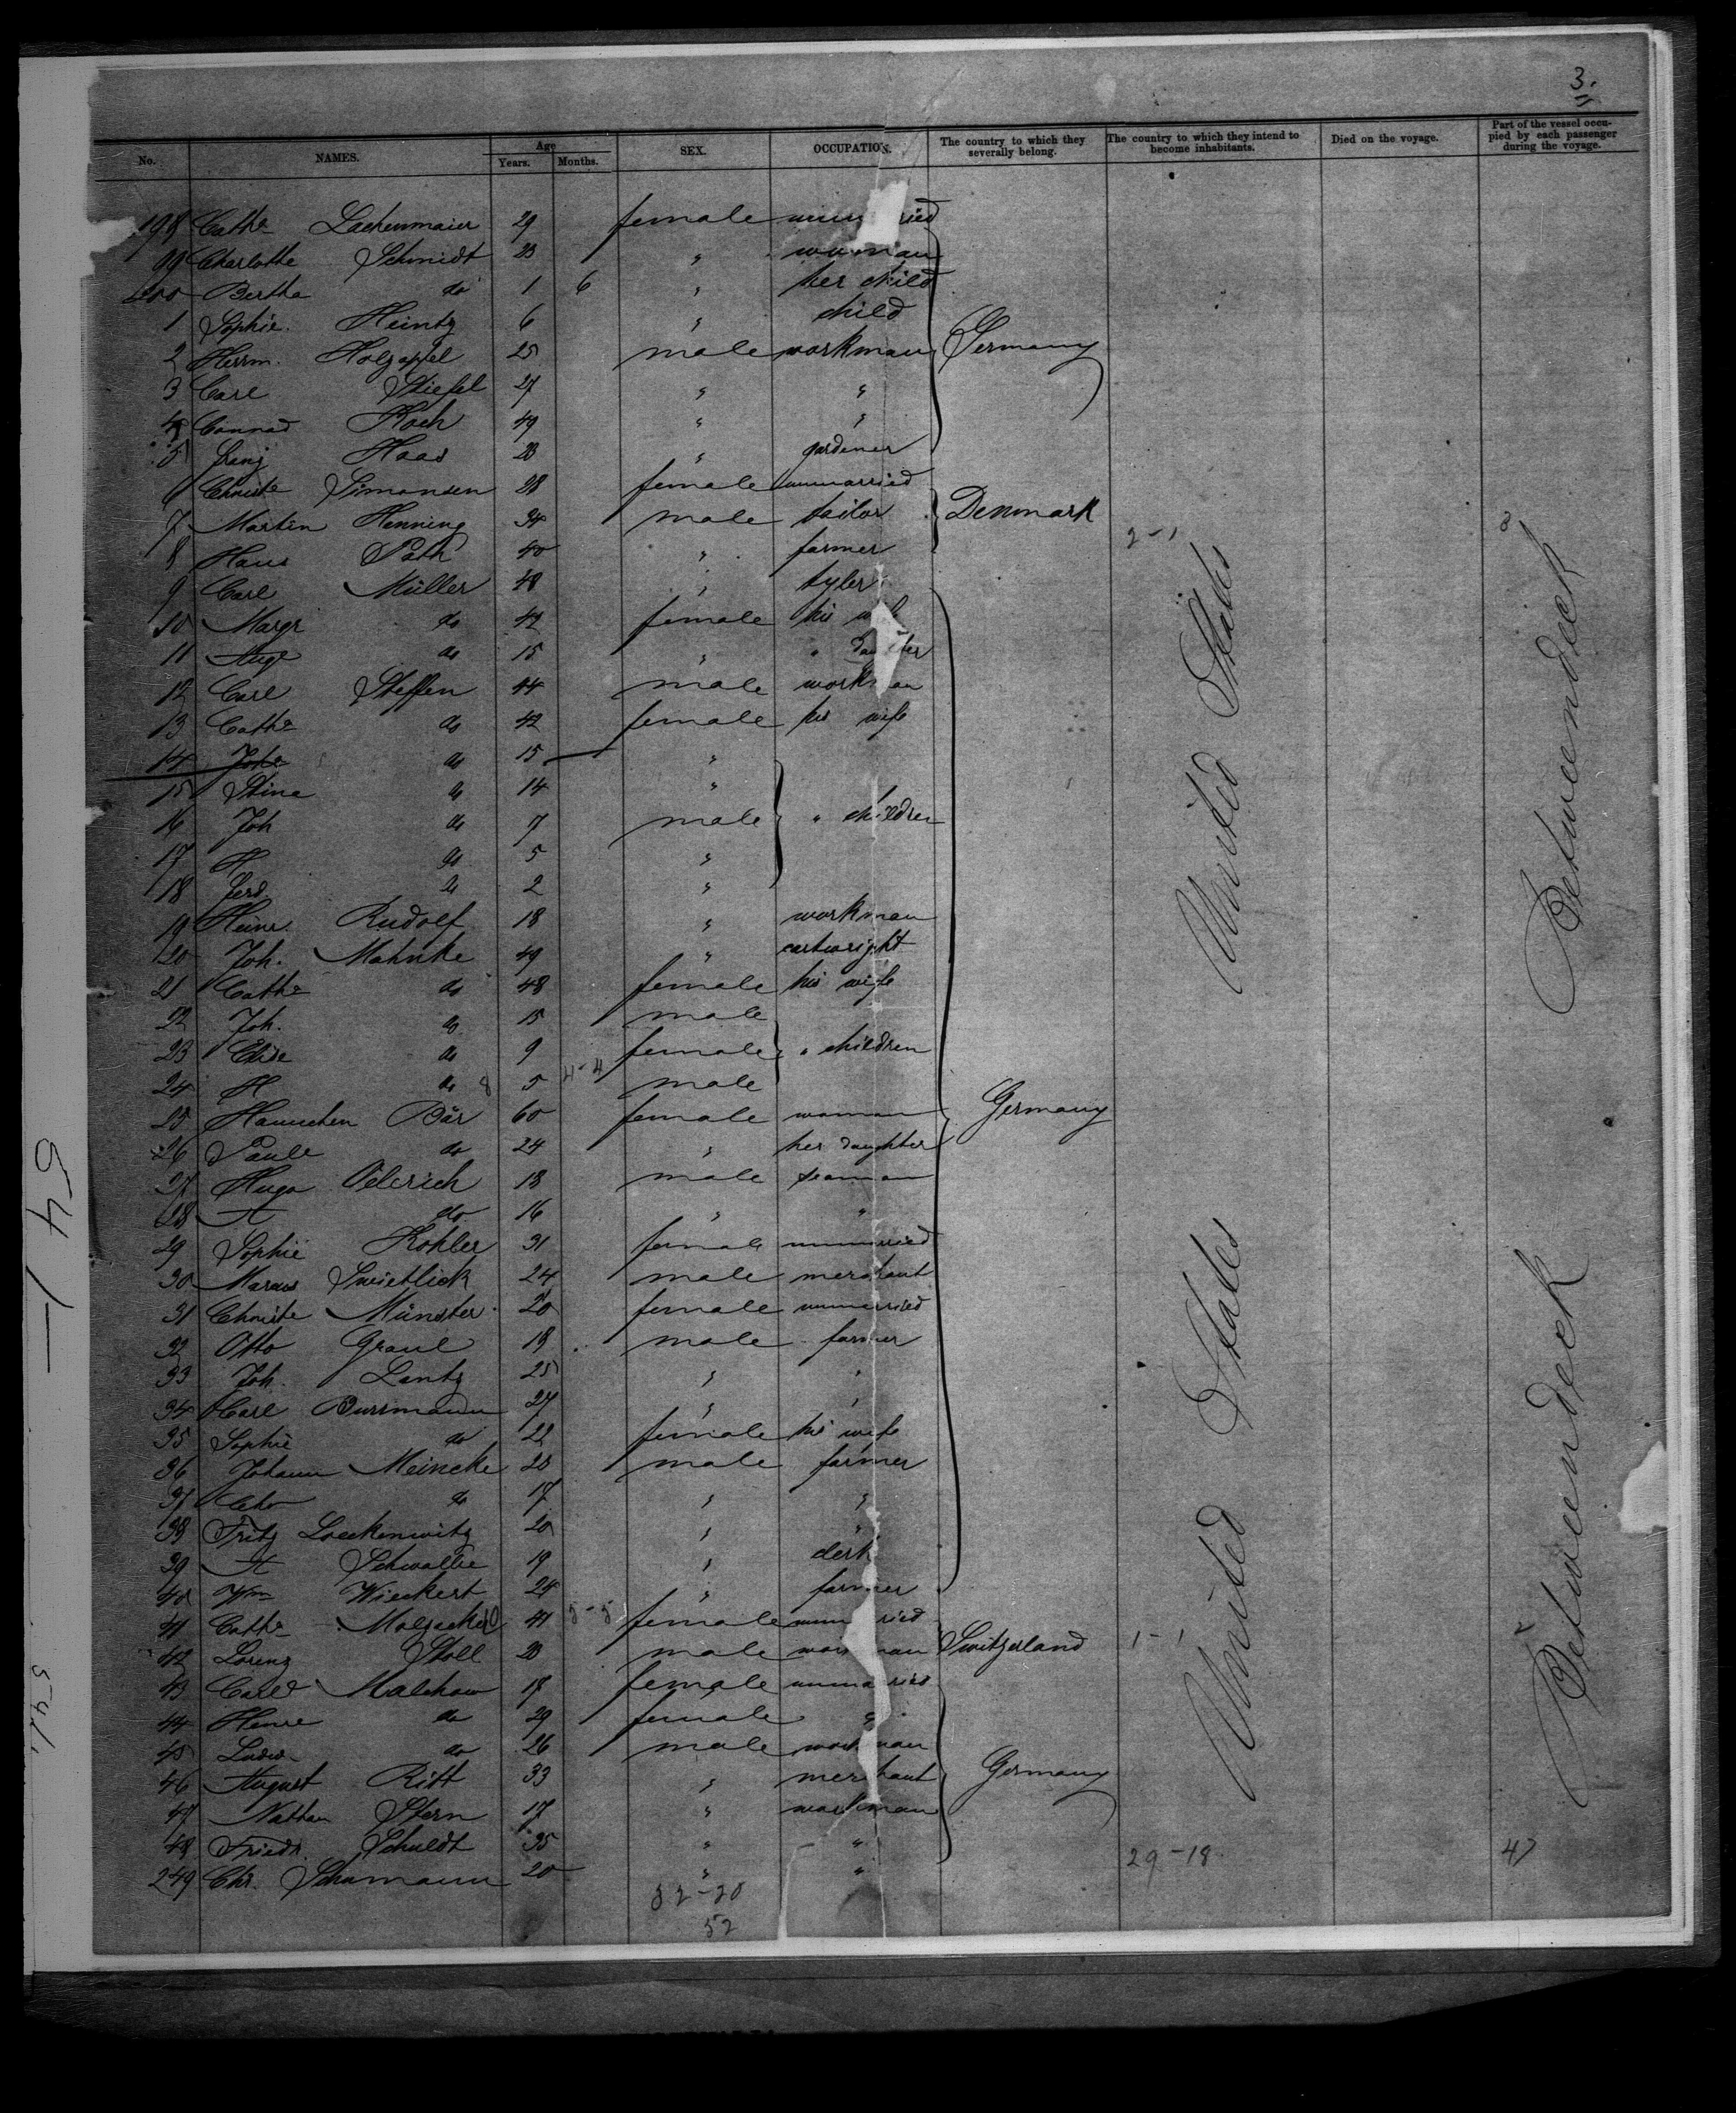 3.
No. NAMES. Age Years. Months. SEX. OCCUPATION. The country to which they severally belong. The country to which they intend to become inhabitants. Died on the voyage. Part of the vessel occupied by each passenger during the voyage.
198 Cathe Lachenmaier 29 female ried
99 Charlotte Schmidt 23 " woman
200 Bertha do 1 6 " her child
1 Sophie Heintz 6 " child
2 Herrm. Holzapfel 25 male workman Germany
3 Carl Stiefel 27 " "
4 Conrad Koch 49 " "
5 Franz Haas 23 " gardener
6 Christe Simonsen 28 female unmarried
7 Martin Henning 34 male tailor Denmark
8 Hans Path 40 " farmer 2-1 3
9 Carl Müller 48 " tyler
10 Margr do 42 female his
11 Auge do 15 " " daughter
12 Carl Steffen 44 male workman
13 Cathe do 42 female his wife
14 Johe do 15 "
15 Stine do 14 "
16 Joh do 7 male " children
17 H do 5 "
18 Ferd do 2 "
19 Heinr. Rudolf 18 " workman
20 Joh. Mahnke 49 " cartwright
21 Cathe do 48 female his wife
22 Joh. do 15 male
23 Elise do 9 female " children
24 H do 8 5 4-4 male
25 Hannchen Bär 60 female woman Germany
26 Paule do 24 " her daughter
27 Hugo Oelerich 18 male seaman
28 A do 16 " "
29 Sophie Kohler 31 female unmarried
30 Marcus Swietlick 24 male merchant
31 Christe Münster 20 female unmarried
32 Otto Graul 19 male farmer
33 Joh. Lentz 25 " "
34 Carl Burrmann 27 " "
35 Sophie do 22 female his wife
36 Johann Meincke 23 male farmer
37 do 17 " "
38 Fritz Loeckenwitz 20 " "
39 A Schwalbe 19 " clerk
40 Wm Wieckert 24 " farmer
41 Cathe 41 5-5 female ried
42 Lorenz Stoll 23 male workman Switzerland 1-1
43 Malchow 18 female unmarried
44 Henre do 29 female "
45 Ludw. do 26 male workman
46 August Ritt 33 " merchant Germany
47 Nathan Stern 17 " workman
48 Friedr. Schuldt 35 " "
249 Chr. Schumann 20 " " 29-18 47
32-20
52
United States
United States
Betweendeck
Betweendeck
541
541